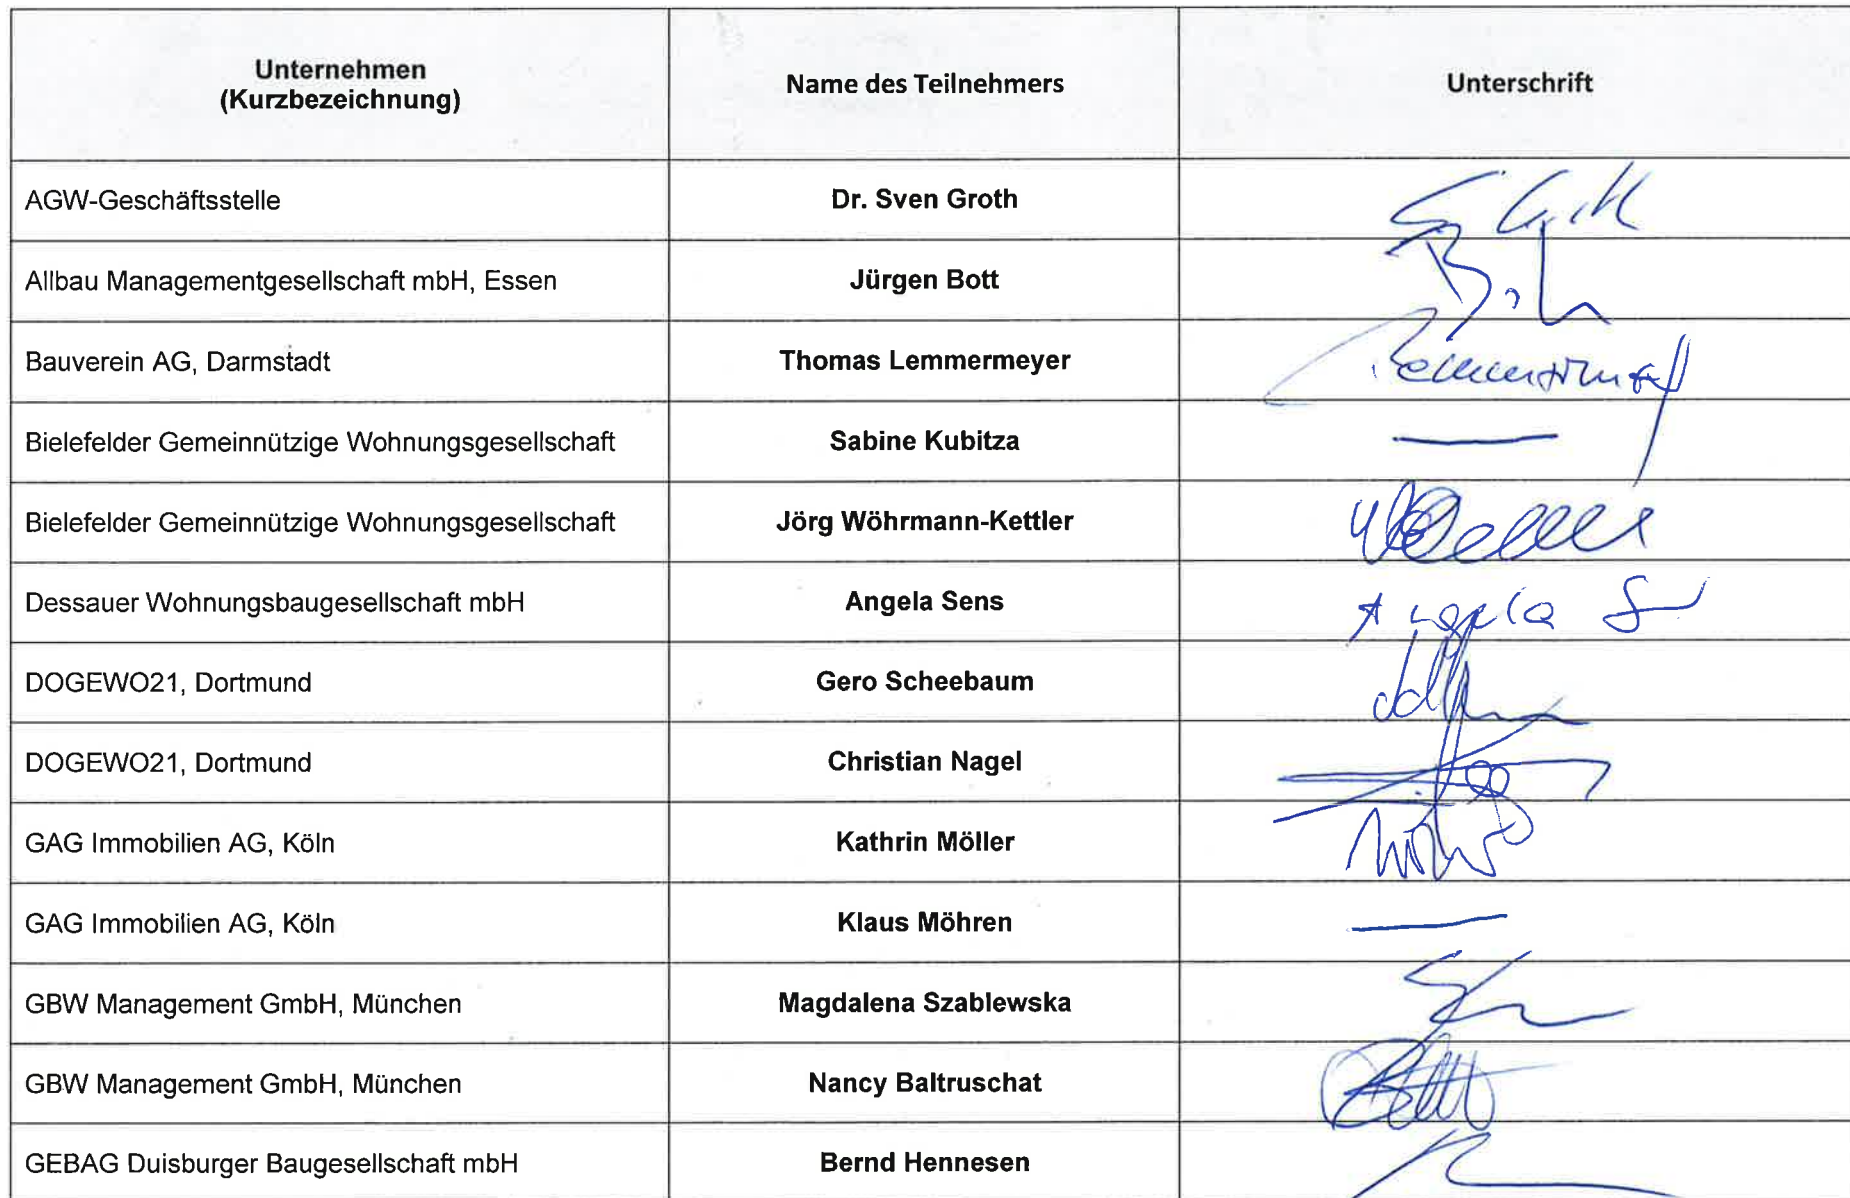 Unternehmen
(Kurzbezeichnung)
Name des Teilnehmers
Unterschrift
AGW-Geschäftsstelle Dr. Sven Groth
Allbau Managementgesellschaft mbH, Essen Jürgen Bott
Bauverein AG, Darmstadt Thomas Lemmermeyer
Bielefelder Gemeinnützige Wohnungsgesellschaft Sabine Kubitza
Bielefelder Gemeinnützige Wohnungsgesellschaft Jörg Wöhrmann-Kettler
Dessauer Wohnungsbaugesellschaft mbH Angela Sens Angela
DOGEWO21, Dortmund Gero Scheebaum
DOGEWO21, Dortmund Christian Nagel
GAG Immobilien AG, Köln Kathrin Möller
GAG Immobilien AG, Köln Klaus Möhren
GBW Management GmbH, München Magdalena Szablewska
GBW Management GmbH, München Nancy Baltruschat
GEBAG Duisburger Baugesellschaft mbH Bernd Hennesen